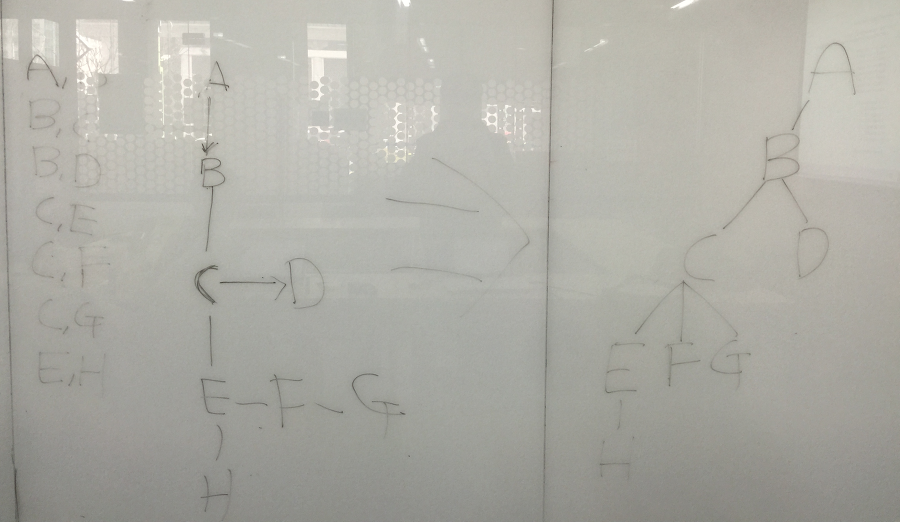 A, B
B, C
B, D
C, E
C, F
C, G
E, H
A
B
C D
E F G
H
A
B
C D
E F G
H